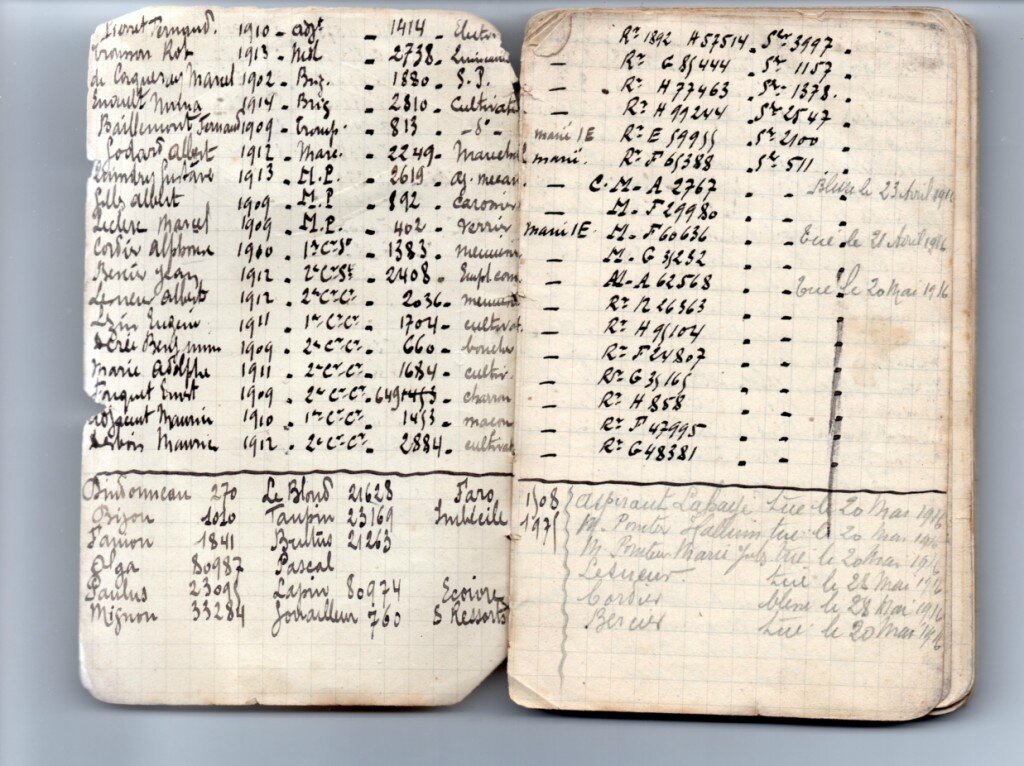 1910 - adjt - 1414 - Electr
1913 - Mdl - 2738 -
de Marcel 1902 - Brig. - 1880 - S.P.
1914 - Brig - 2810 - Cultivat
Baillemont Fernand 1909 - tromp. - 813 - - do -
Godard Albert 1912 - Marc. - 2249 - Marechal
Gustave 1913 - M.P. - 2619 - aj. mecan
Gille Albert 1909 - M.P - 892 -
Leclerc Marcel 1909 - M.P. - 402 - verrier
Cordier Alphonse 1900 - 1r Ct Sr - 1383 - meunier
Bercier Jean 1912 - 2e Ct St - 2408 - Empl. com
Lesueur Albert 1912 - 2e Ct Ct - 2036 - menuis
Eugène 1911 - 1r Ct Ct - 1704 - cultivat.
1909 - 2e Ct Ct - 660 - boucher
Marie Adolphe 1911 - 2e Ct Ct - 1684 - cultiv.
Ernest 1909 - 2e Ct Ct - 649 - charron
Maurice 1910 - 1r Ct Ct - 1453 - maçon
Maurice 1912 - 2e Ct Ct - 2884 - cultivat
270 Le Blond 21628 Faro
Bijou 1010 Taupin 23169 Imbécile
Fanion 1841 Brutus 21263
Olga 80987 Pascal
Paulus 23095 Lapin 80974
Mignon 33284 760 8 Ressorts
Rr 1892 H 57514 - Sbr 3997 -
- Rr G 85444 - Sr 1157 -
- Rr H 77463 - Sr 1378 -
- Rr H 99244 - Sr 2547 -
marié 1E Rr E 59955 - Sr 2100 -
marié. Rr F 65388 - Sr 511 -
- C. M - A 2767 - Blessé le 23 Avril 1916
- M. F 29980 -
marié 1E. M - F 60636 - tué le 21 Avril 1916
- M - G 35232 -
- Al - A 62568 - tué le 20 Mai 1916
- Rr N 26363 -
- Rr H 95104 -
- Rr F 24807 -
- Rr G 35165 -
- Rr H 858 -
- Rr F 47995 -
- Rr G 48381 -
1508 aspirant tué le 20 Mai 1916
1975 M. Pointeur tué le 20 Mai 1916
M Pointeur Marie tué le 20 Mai 1916
Lesueur. tué le 28 Mai 1916
Cordier blessé le 28 Mai 1916
Bercier tué le 20 Mai 1916